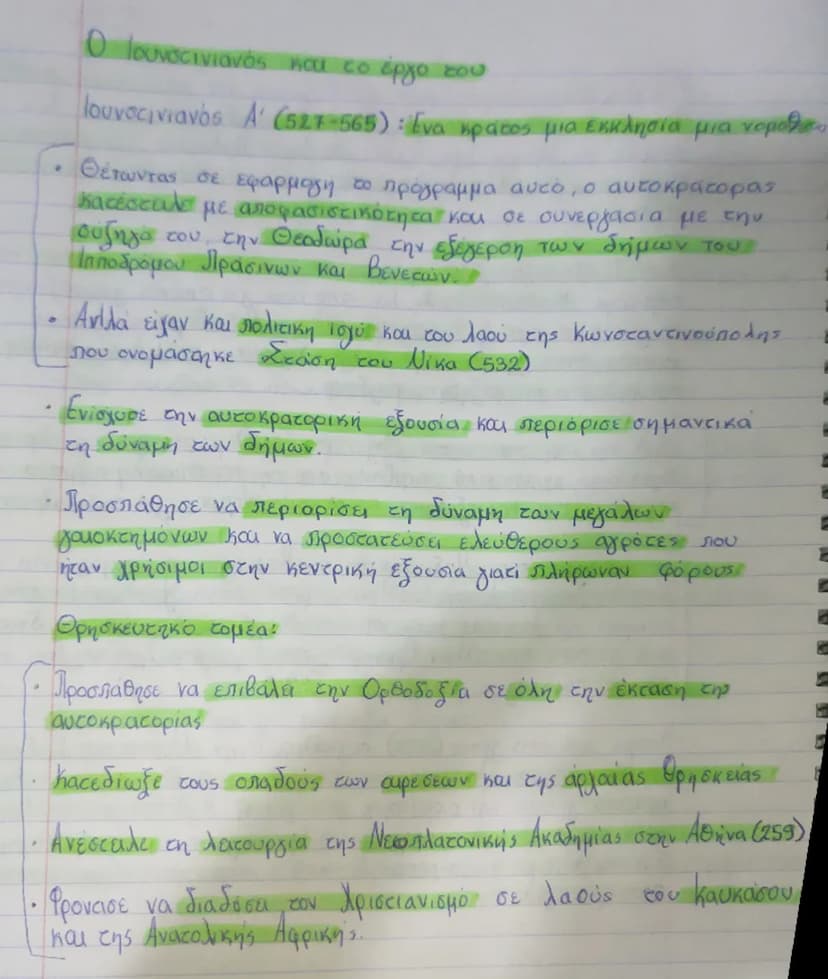 Ο Ιουνστινιανός και το έργο του
Ιουνστινιανός Α' (527-565): Ένα κράτος μια εκκλησία μια νομοθε
• Θέτωντας σε εφαρμογή το πρόγραμμα αυτό, ο αυτοκράτορας
κατέστειλε με αποφασιστικότητα και σε συνεργασία με την
σύζηγό του, την Θεοδώρα την εξέγερση των δήμων του
Ιπποδρόμου Πράσινων και Βενετών.
• Αλλά είχαν και πολιτική ισχύ και του λαού της Κωνσταντινούπολης
που ονομάστηκε Στάση του Νίκα (532)
• Ενίσχυσε την αυτοκρατορική εξουσία και περιόρισε σημαντικά
τη δύναμη των δήμων.
• Προσπάθησε να περιορίσει τη δύναμη των μεγάλων
γαιοκτημόνων και να προστατεύσει ελεύθερους αγρότες που
ήταν χρήσιμοι στην κεντρική εξουσία γιατί πλήρωναν φόρους
Θρησκευτικό τομέα:
• Προσπάθησε να επιβάλει την Ορθοδοξία σε όλη την έκταση της
αυτοκρατορίας
• Κατεδίωξε τους οπαδούς των αιρέσεων και της αρχαίας θρησκείας
• Ανέστειλε τη λειτουργία της Νεοπλατονικής Ακαδημίας στην Αθήνα (259)
• Φρόντισε να διαδόσει τον Χριστιανισμό σε λαούς του Καυκάσου
και της Ανατολικής Αφρικής.